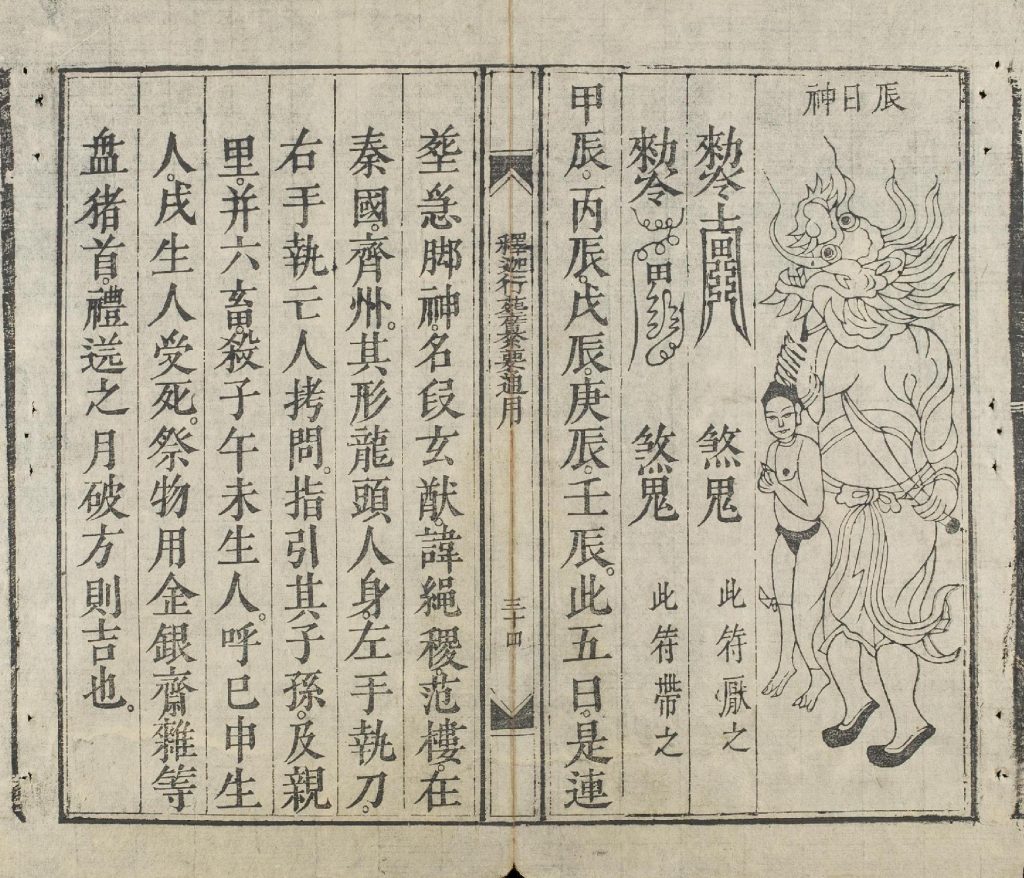 辰日神
勅令 煞鬼 此符厭之
勅令 煞鬼 此符帶之
甲辰。丙辰。戊辰。庚辰。壬辰。此五日。是連
塟急脚神。名段玄猷。諱繩稷范樓。在
秦國。齊州。其形龍頭人身左手執刀。
右手執亡人拷問。指引其子孫。及親
里。并六畜。殺子午未生人。呼巳申生
人。戌生人受死。祭物用金銀齋雜等
盘猪首。禮送之月破方則吉也。
三十四